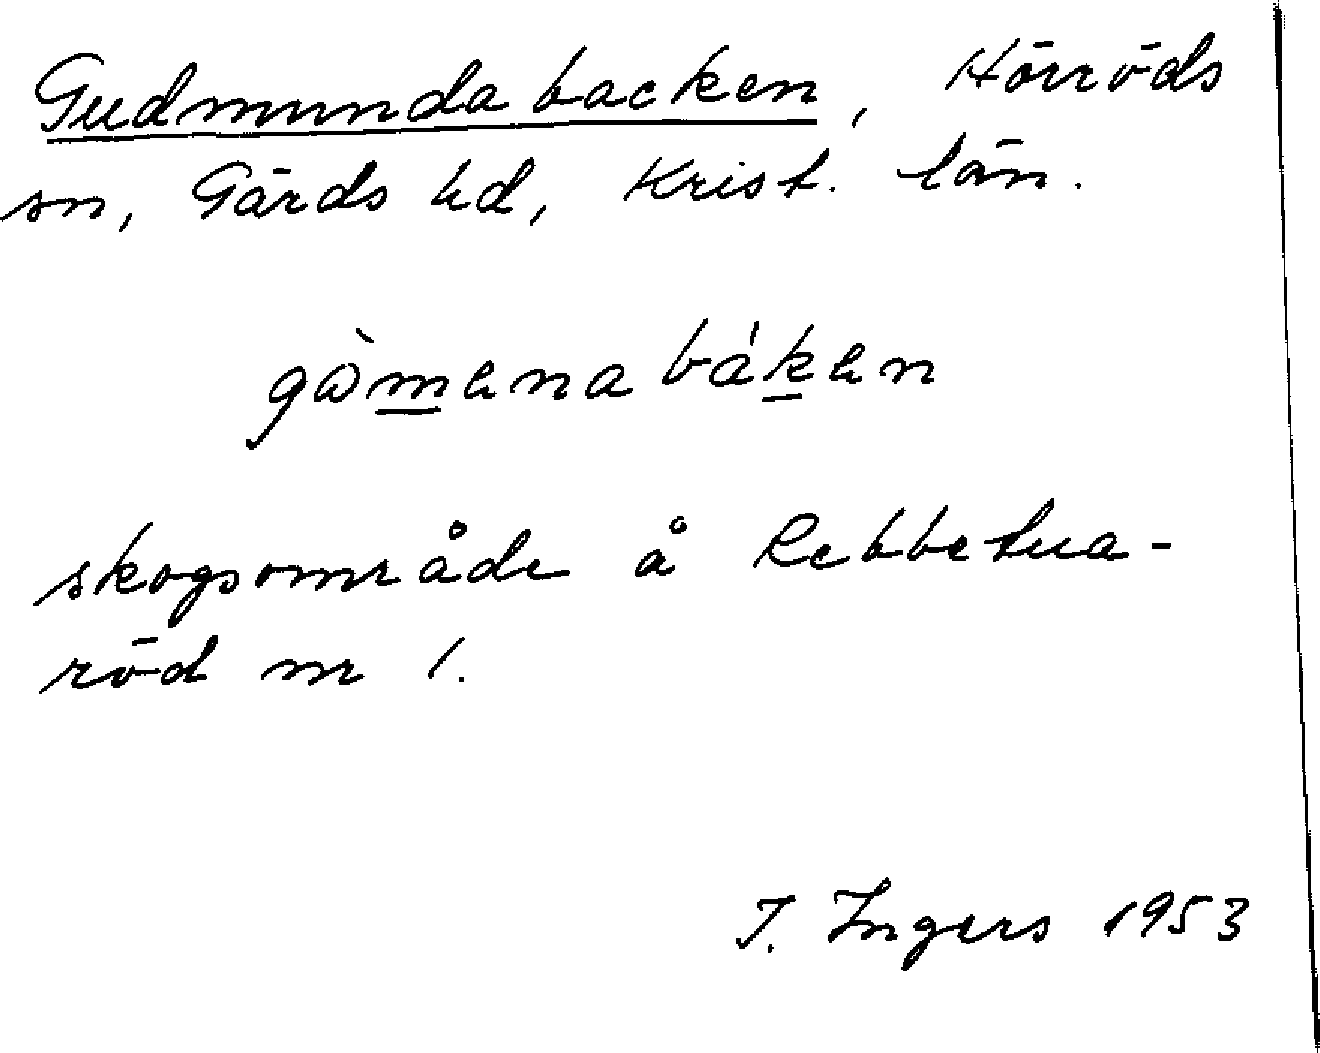 Gudmundabacken, Hörröds
sn, Gärds hd, Krist. län.
gòmena báken
skogsområde å Rebbetua-
röd nr 1.
I. Ingers 1953